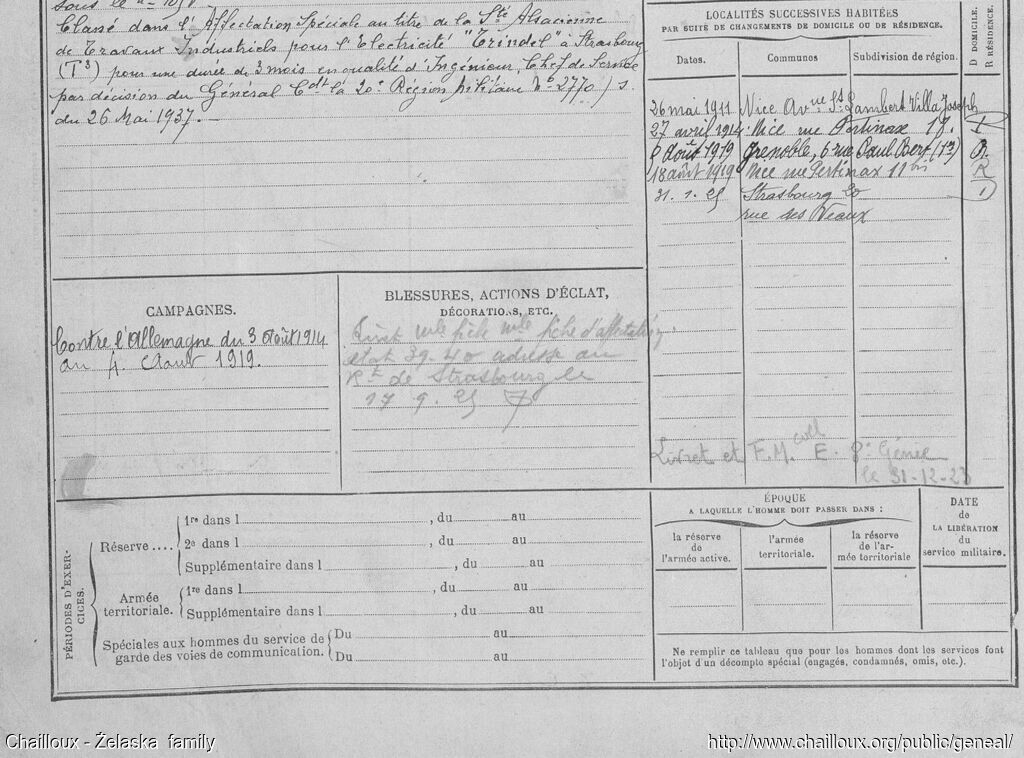 Classé dans l'Affectation Spéciale au titre de la Sté Alsacienne
de Travaux Industriels pour l'Electricité "Trindel" à Strasbourg
(T3) pour une durée de 3 mois en qualité d'Ingénieur, Chef de Service
par décision du Général Cdt la 20e Région Militaire No 2770/S
du 26 Mai 1937.
LOCALITÉS SUCCESSIVES HABITÉES
PAR SUITE DE CHANGEMENTS DE DOMICILE OU DE RÉSIDENCE.
D DOMICILE.
R RÉSIDENCE.
Dates. Communes Subdivision de région.
26 mai 1911 Nice Avnue St Lambert Villa Joseph
27 avril 1914 Nice rue Pertinax 17.
août 1919 Grenoble, 6 rue Paul Bert (T3) R.
18 août 1919 Nice rue Pertinax 11 bis R
31.1.25 Strasbourg 20 D
rue des Veaux
CAMPAGNES.
Contre l'Allemagne du 3 Août 1914
au 4 Août 1919.
BLESSURES, ACTIONS D'ÉCLAT,
DÉCORATIONS, ETC.
Livret mle fiche mle fiche d'affectation
état 39.40 adressé au
Rt de Strasbourg le
17 9. 25
Livret et F.M. E. 8e Génie
le 31-12-23
PÉRIODES D'EXERCICES.
Réserve ....
1re dans l , du au
2e dans l , du au
Supplémentaire dans l , du au
Armée
territoriale.
1re dans l , du au
Supplémentaire dans l , du au
Spéciales aux hommes du service de
garde des voies de communication.
Du au
Du au
ÉPOQUE
A LAQUELLE L'HOMME DOIT PASSER DANS :
la réserve
de
l'armée active.
l'armée
territoriale.
la réserve
de l'ar-
mée territoriale
DATE
de
LA LIBÉRATION
du
service militaire.
Ne remplir ce tableau que pour les hommes dont les services font
l'objet d'un décompte spécial (engagés, condamnés, omis, etc.).
Chailloux - Želaska family
http://www.chailloux.org/public/geneal/